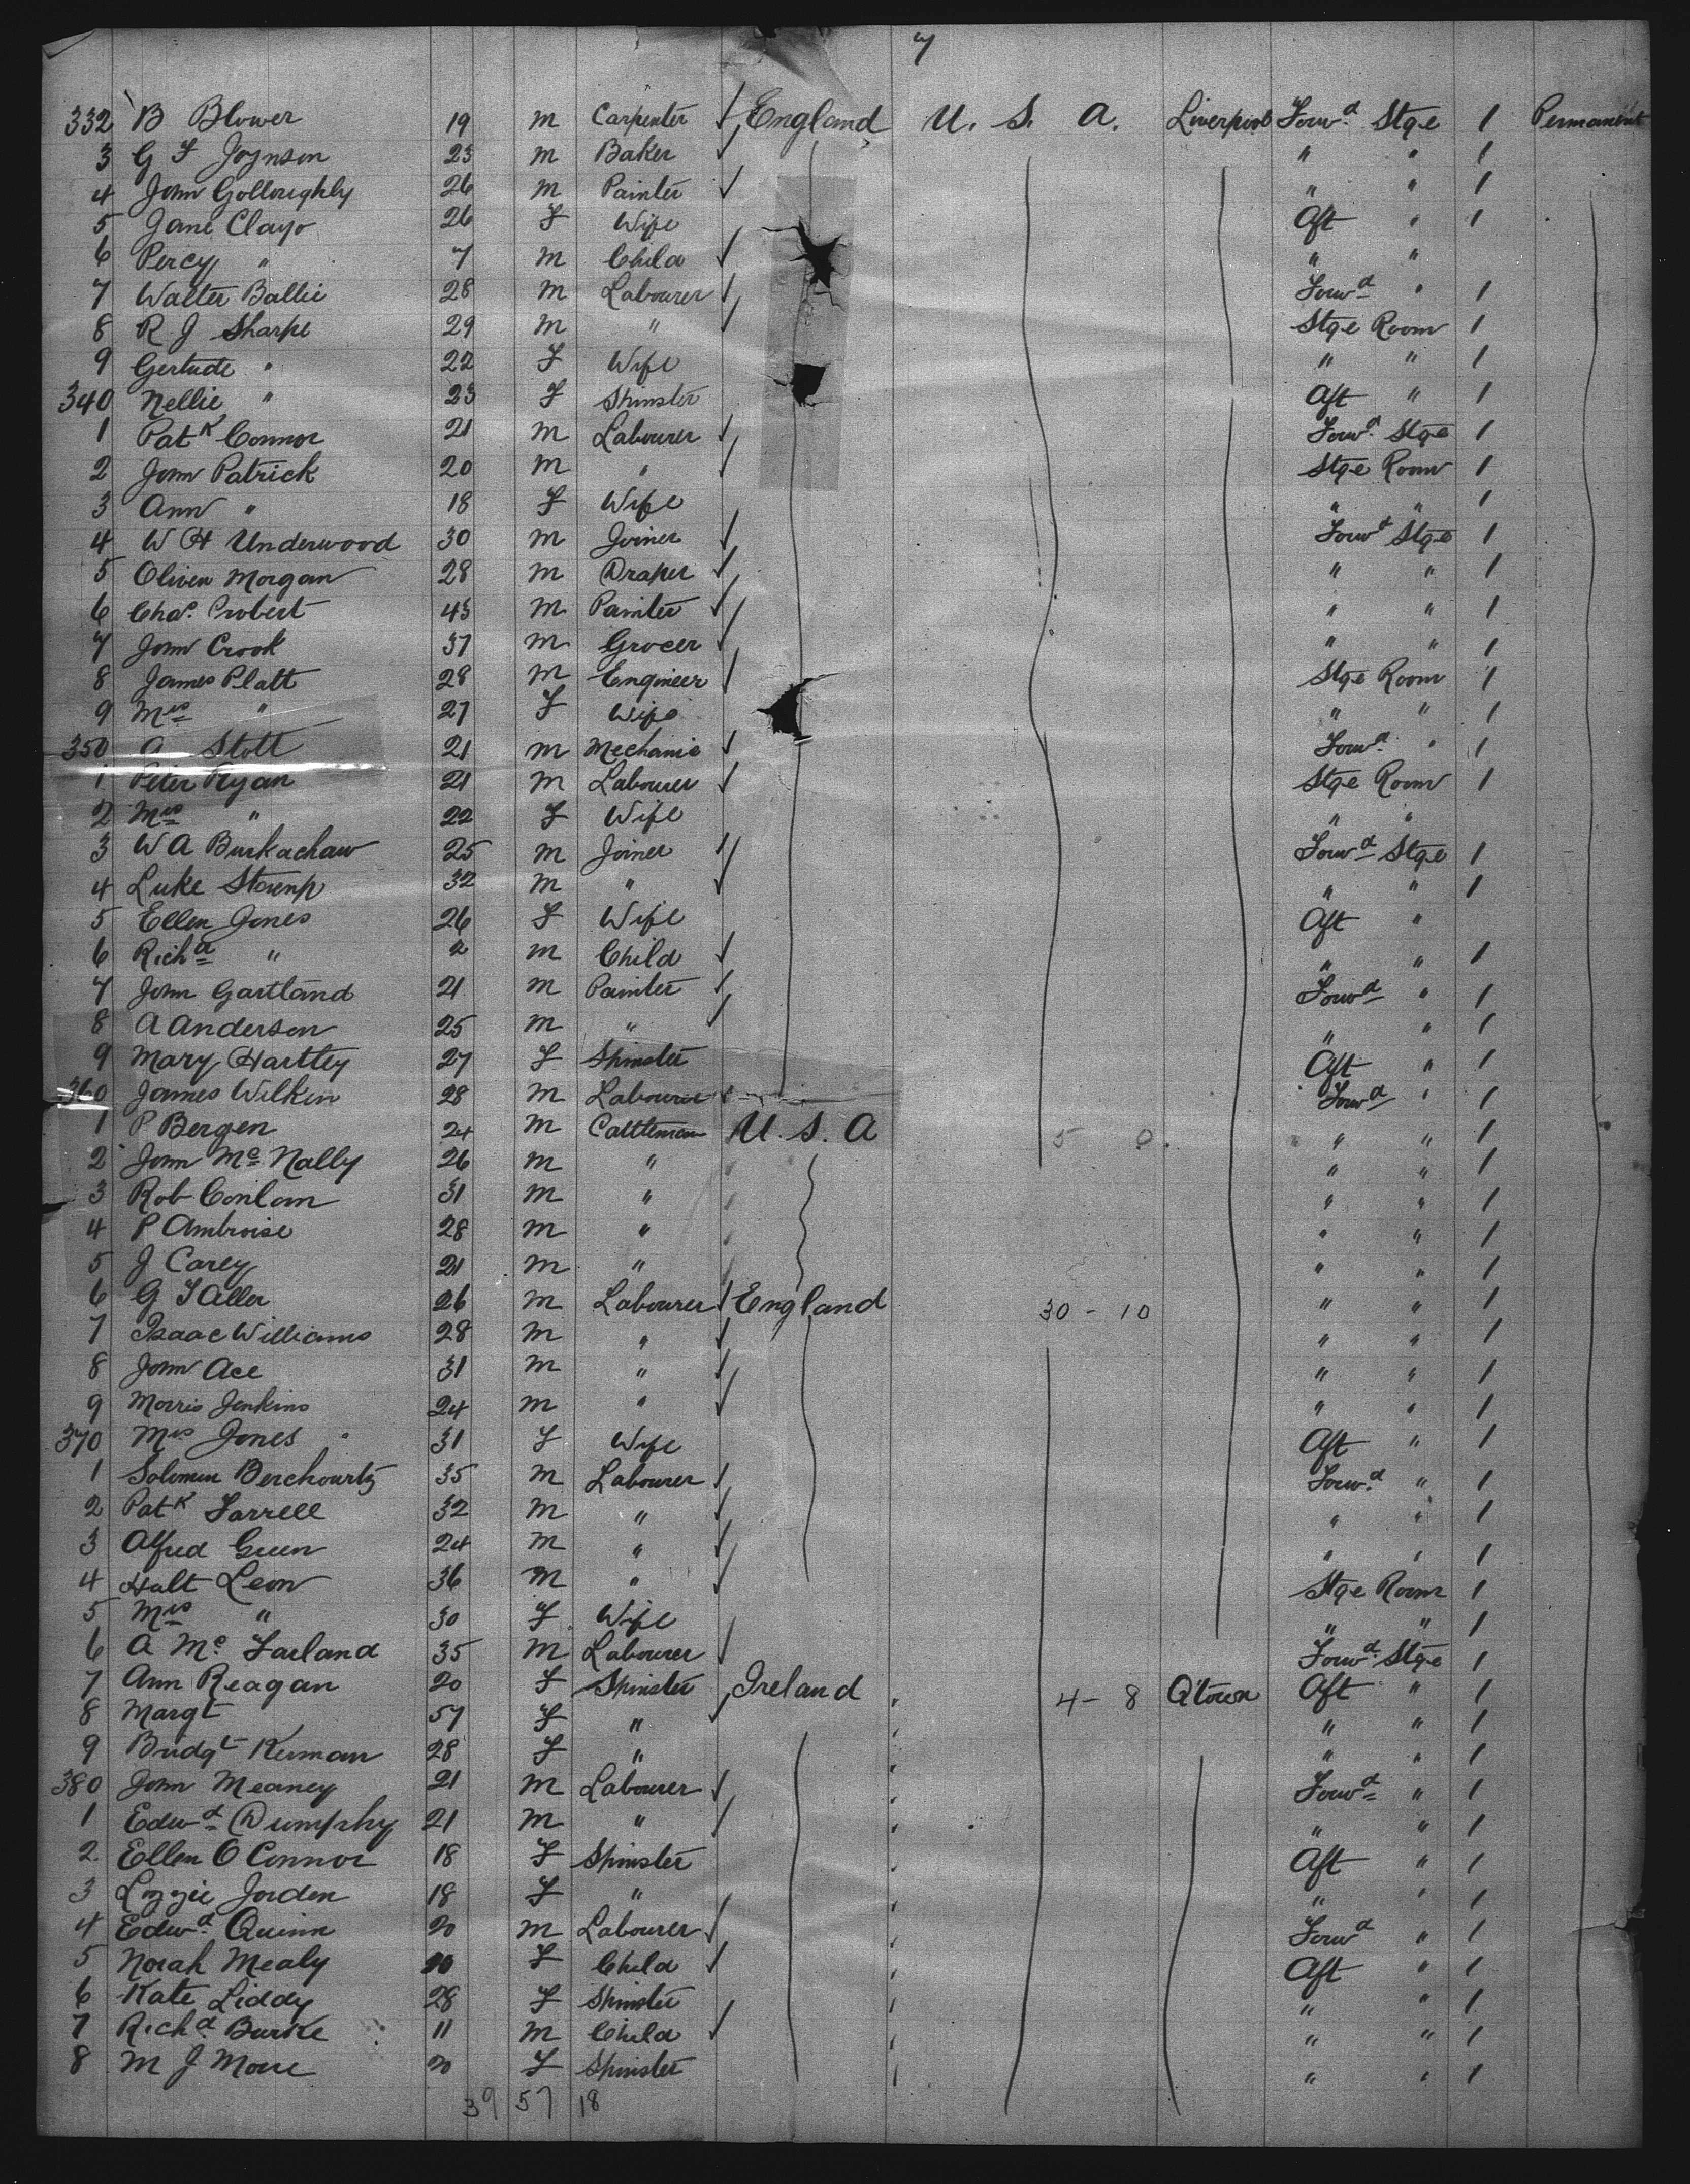 7
332 B Blower 19 m Carpenter England U. S. A. Liverpool Forwd Stge 1 Permanent
3 G F Joynson 23 m Baker " " 1
4 John Golloughly 26 m Painter " " 1
5 Jane Clayo 26 F Wife Aft " 1
6 Percy " 7 m Child " "
7 Walter Ballie 28 m Labourer Forwd " 1
8 R J Sharpe 29 m " Stge Room 1
9 Gertude " 22 F Wife " " 1
340 Nellie " 23 F Spinster Aft " 1
1 Patk Connor 21 m Labourer Forwd Stge 1
2 John Patrick 20 m " Stge Room 1
3 Ann " 18 F Wife " " 1
4 W H Underwood 30 m Joiner Forwd Stge 1
5 Oliven Morgan 28 m Draper " " 1
6 Chas. Probert 43 m Painter " " 1
7 John Crook 37 m Grocer " " 1
8 James Platt 28 m Engineer Stge Room 1
9 Mrs " 27 F Wife " " 1
350 A Stott 21 m Mechanic Forwd " 1
1 Peter Ryan 21 m Labourer Stge Room 1
2 Mrs " 22 F Wife " "
3 W A Burkachaw 25 m Joiner Forwd Stge 1
4 Luke 32 m " " " 1
5 Ellen Jones 26 F Wife Aft "
6 Richd " 2 m Child " " 1
7 John Gartland 21 m Painter Forwd " 1
8 A Anderson 25 m " " " 1
9 Mary Hartley 27 F Spinster Aft " 1
360 James Wilkin 28 m Labourer Forwd " 1
1 P Bergen 24 m Cattleman U. S. A 5 0 " " 1
2 John Mc Nally 26 m " " " 1
3 Rob Conlan 31 m " " " 1
4 P Ambroise 28 m " " " 1
5 J Carey 21 m " " " 1
6 G F Aller 26 m Labourer England 30 - 10 " " 1
7 Isaac Williams 28 m " " " 1
8 John Ace 31 m " " " 1
9 Morris Jenkins 24 m " " " 1
370 Mrs Jones 31 F Wife Aft " 1
1 Solomun Berchowrtz 35 m Labourer Forwd " 1
2 Patk Farrell 32 m " " " 1
3 Alfred Green 24 m " " " 1
4 Halt Leon 36 m " Stge Room 1
5 Mrs " 30 F Wife " " 1
6 A Mc Farland 35 m Labourer Forwd Stge 1
7 Ann Reagan 20 F Spinster Ireland 4 - 8 Q'town Aft " 1
8 Margt 57 F " " " 1
9 Bridgt Kernan 28 F " " " 1
380 John Meaney 21 m Labourer Forwd " 1
1 Edwd Dumphy 21 m " " " 1
2. Ellen O Connor 18 F Spinster Aft " 1
3 Lizzie Jorden 18 F " " " 1
4 Edwd Quinn 20 m Labourer Forwd " 1
5 Norah Mealy 10 F Child Aft " 1
6 Kate Liddy 28 F Spinster " " 1
7 Richd Burke 11 m Child " " 1
8 M J More 20 F Spinster " " 1
39 57 18